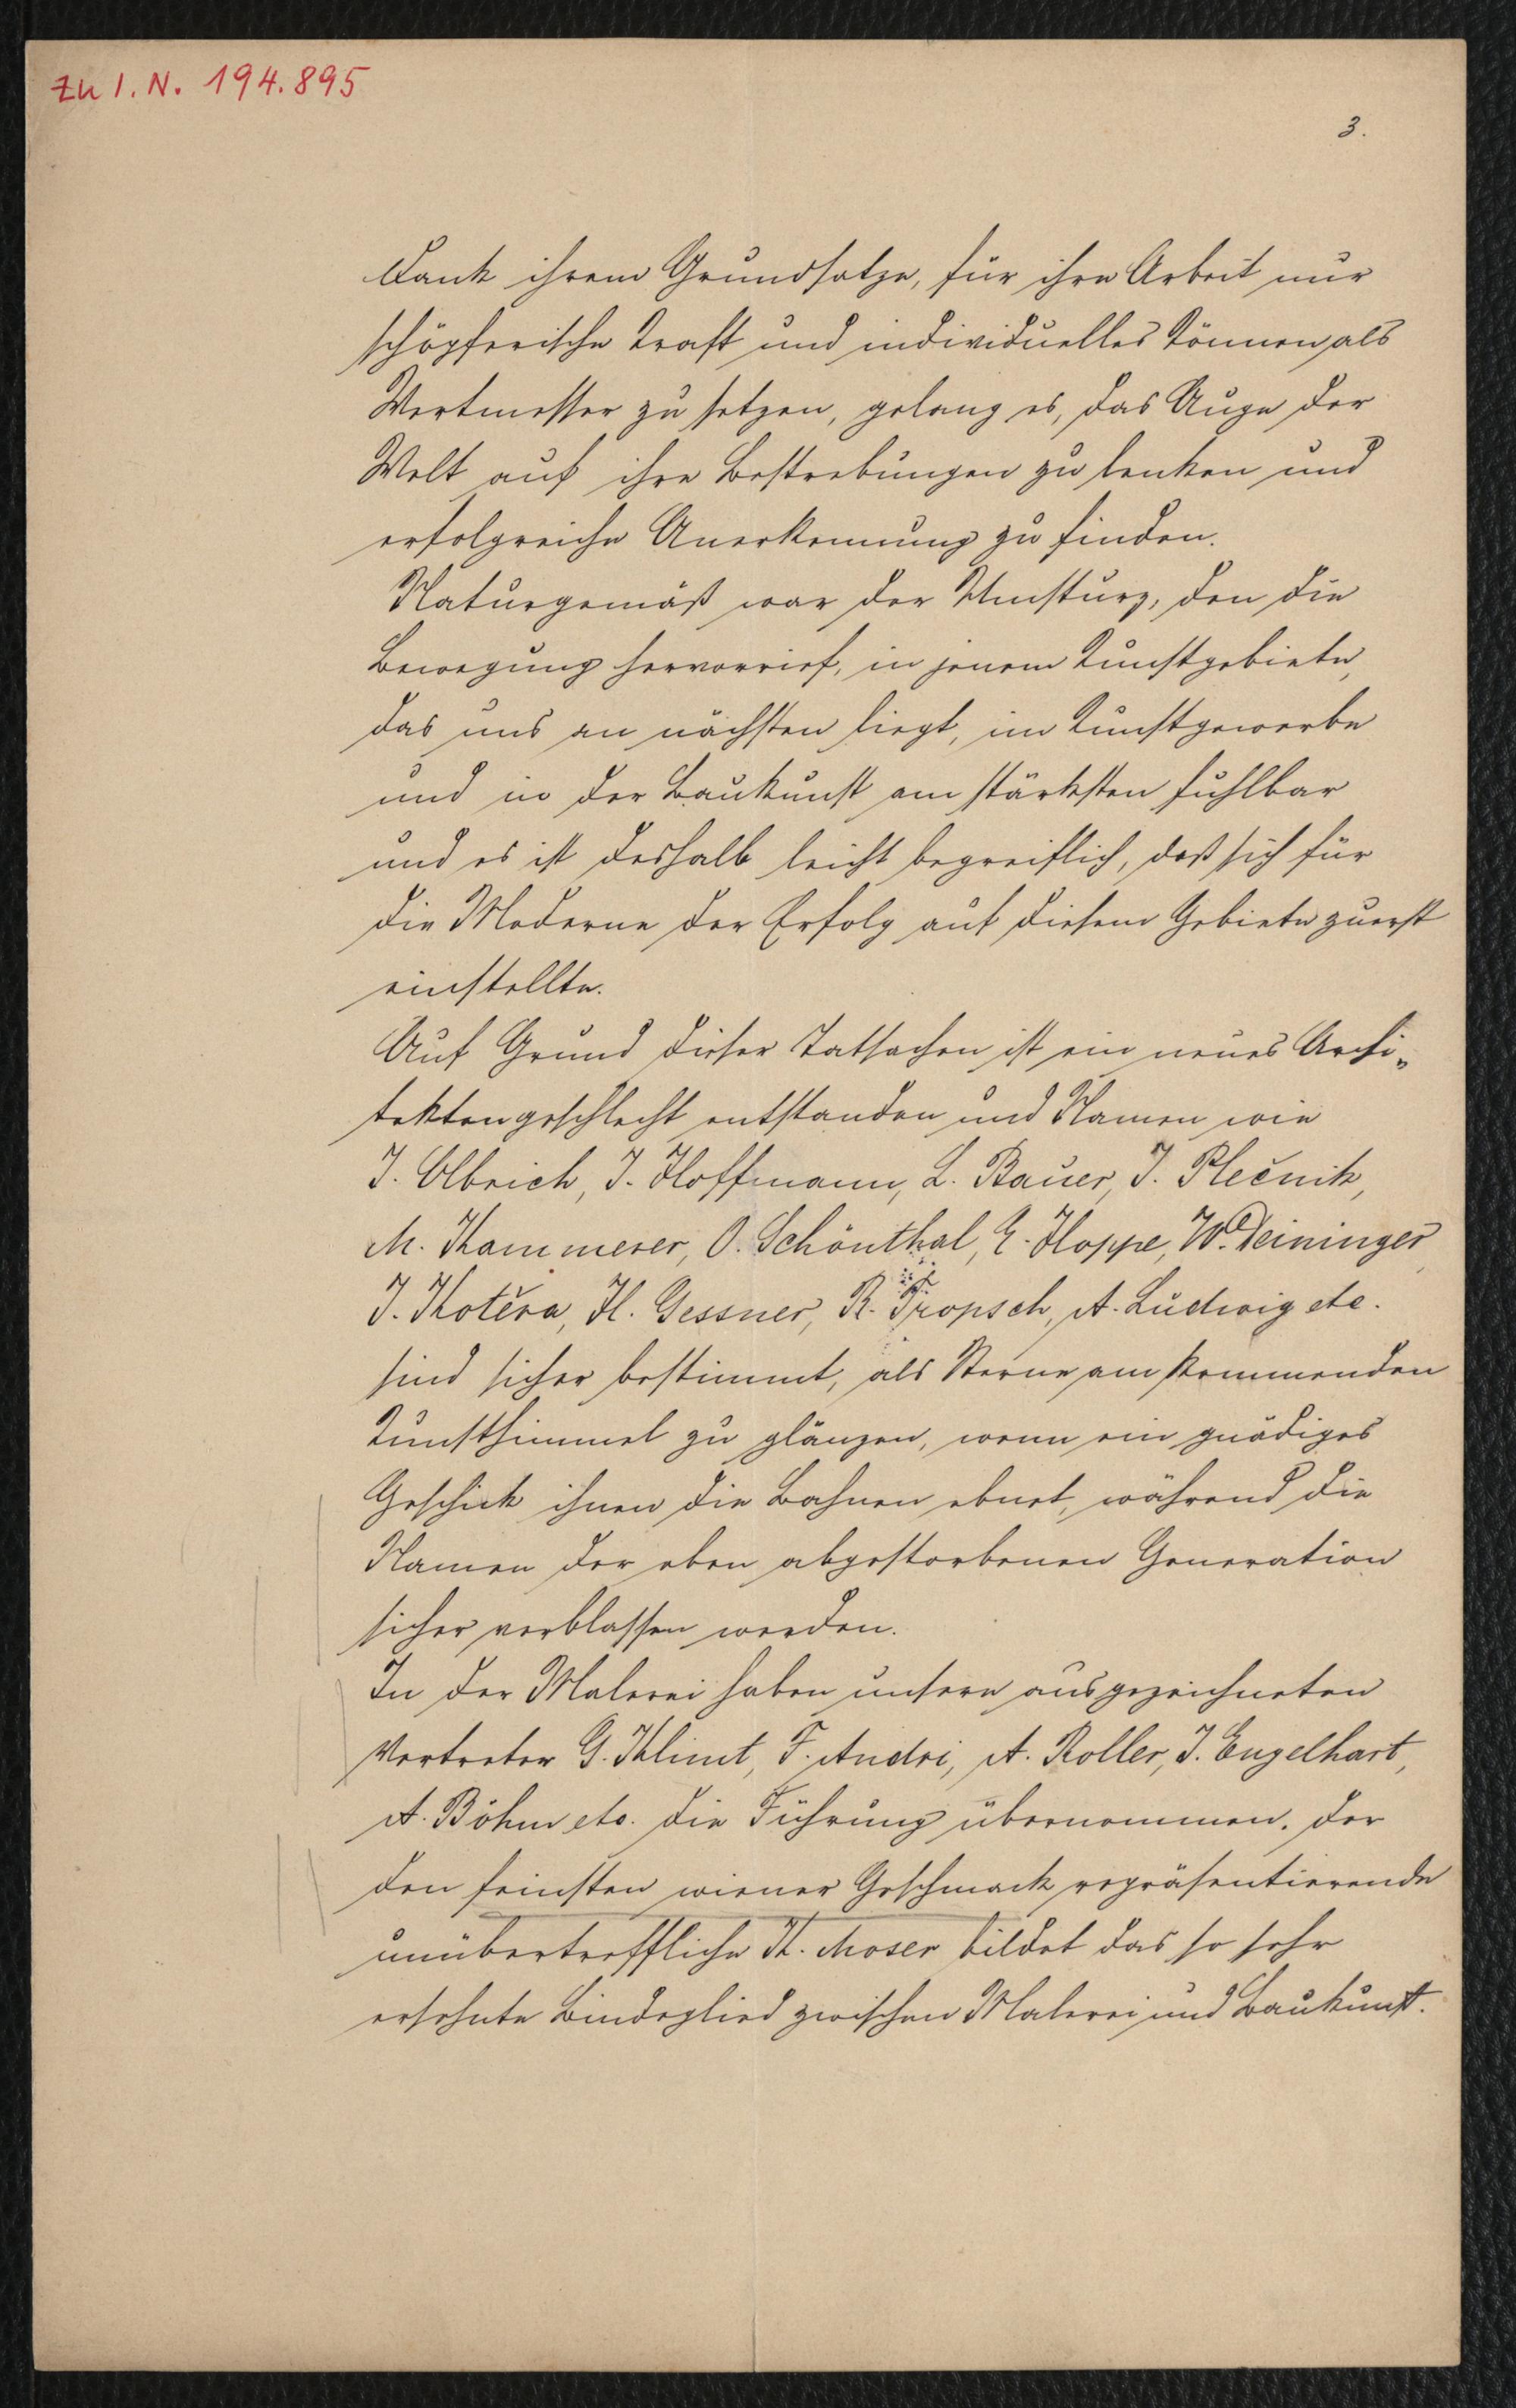 zu I. N. 194.895
3.
Dank ihrem Grundsatze, für ihre Arbeit nur
schöpferische Kraft und individuelles Können als
Wertmesser zu setzen, gelang es, das Auge der
Welt auf ihre Bestrebungen zu lenken und
erfolgreiche Anerkennung zu finden.
Naturgemäß war der Umsturz, den die
Bewegung hervorrief, in jenem Kunstgebiete,
das uns am nächsten liegt, im Kunstgewerbe
und in der Baukunst am stärksten fühlbar
und es ist deshalb leicht begreiflich, daß sich für
die Moderne der Erfolg auf diesem Gebiete zuerst
einstellte.
Auf Grund dieser Tatsachen ist ein neues Archi-
tektengeschlecht entstanden und Namen wie
J. Olbrich, J. Hoffmann, L. Bauer, J. Plečnik,
M. Kammerer, O. Schönthal, E. Hoppe, W. Deininger
J. Kotěra, H. Gessner, R. Tropsch, A. Ludwig etc.
sind sicher bestimmt, als Sterne am kommenden
Kunsthimmel zu glänzen, wenn ein gnädiges
Geschick ihnen die Bahnen ebnet, während die
Namen der eben abgestorbenen Generation
sicher verblassen werden.
In der Malerei haben unsere ausgezeichneten
Vertreter G. Klimt, F. Andri, A. Roller, J. Engelhart,
A. Böhm etc. die Führung übernommen. Der
den feinsten wiener Geschmack repräsentierende
unübertreffliche K. Moser bildet das so sehr
ersehnte Bindeglied zwischen Malerei und Baukunst.